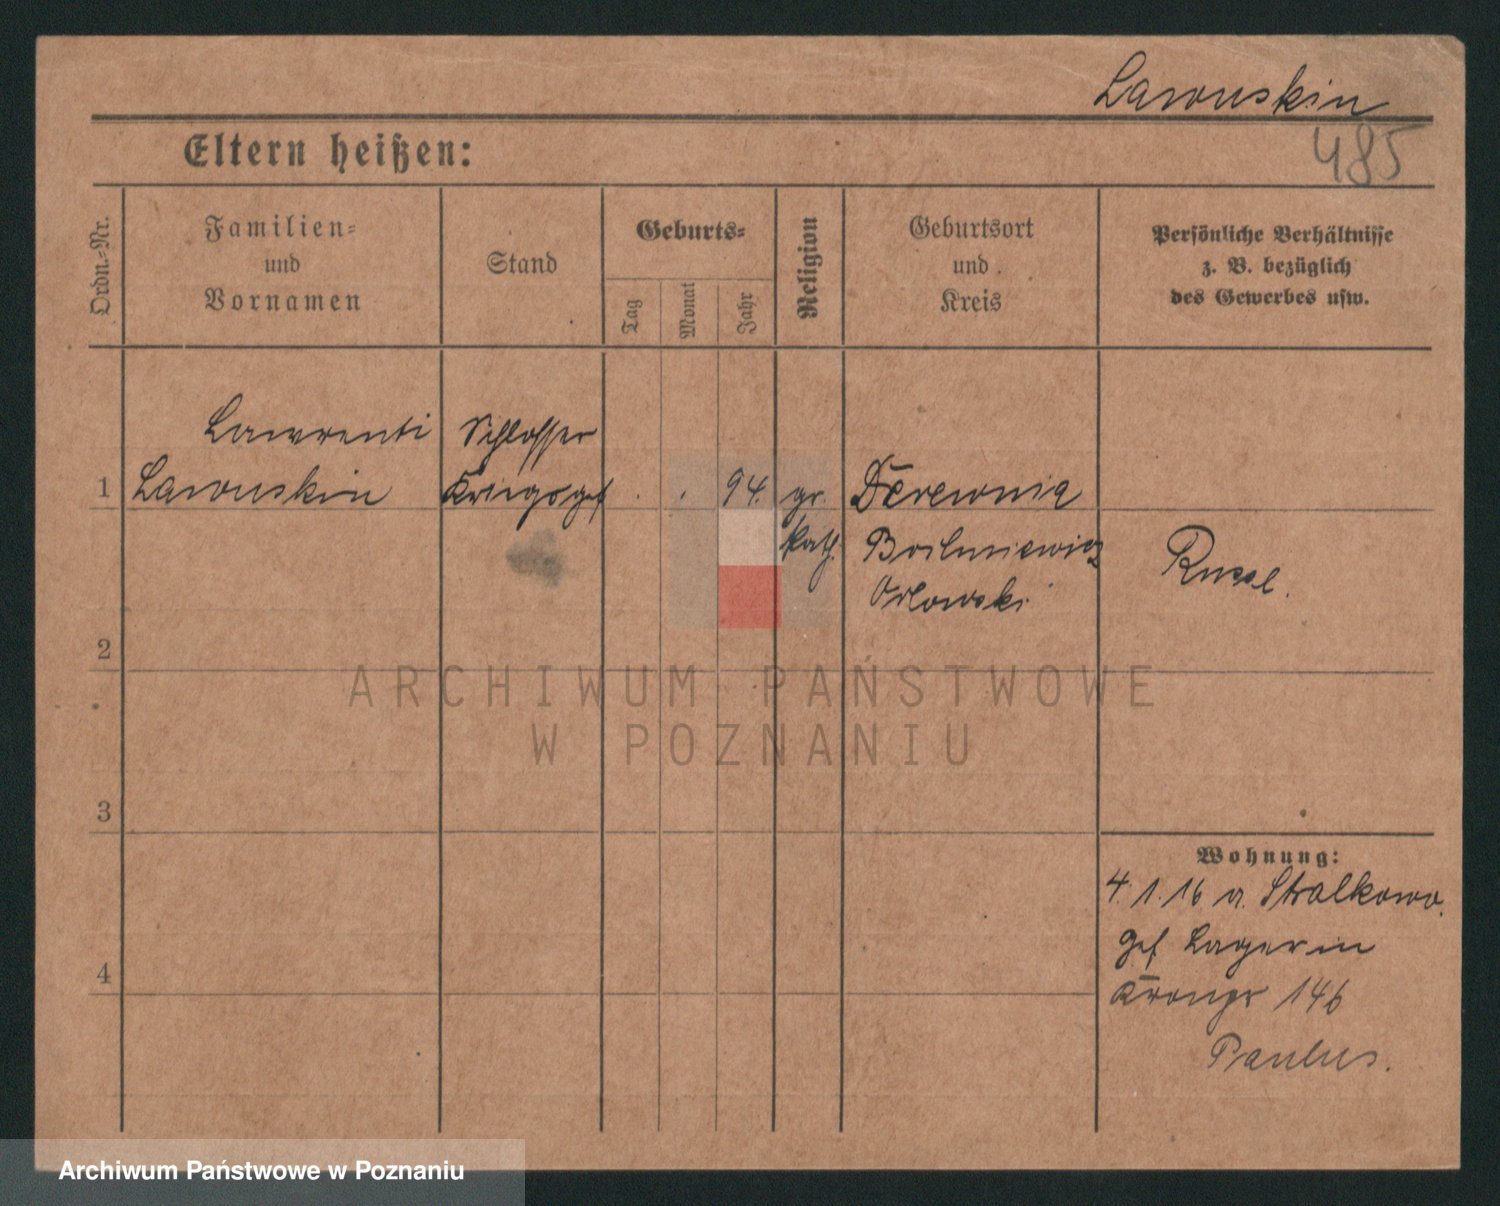 Lawuskin
485
Eltern heißen:
Ordn.-Nr.
Familien-
und
Vornamen
Stand
Geburts-
Tag
Monat
Jahr
Religion
Geburtsort
und
Kreis
Persönliche Verhältnisse
z. B. bezüglich
des Gewerbes usw.
Lawrenti
Schlosser
1
Lawuskin
Kriegsgef
94.
gr.
Derewnia
kath.
Orlowski
Russe.
2
ARCHIWUM PAŃSTWOWE
W POZNANIU
3
Wohnung:
4.1.16 a. Stralkowo.
gef Lager in
4
146
Paulus.
Archiwum Państwowe w Poznaniu